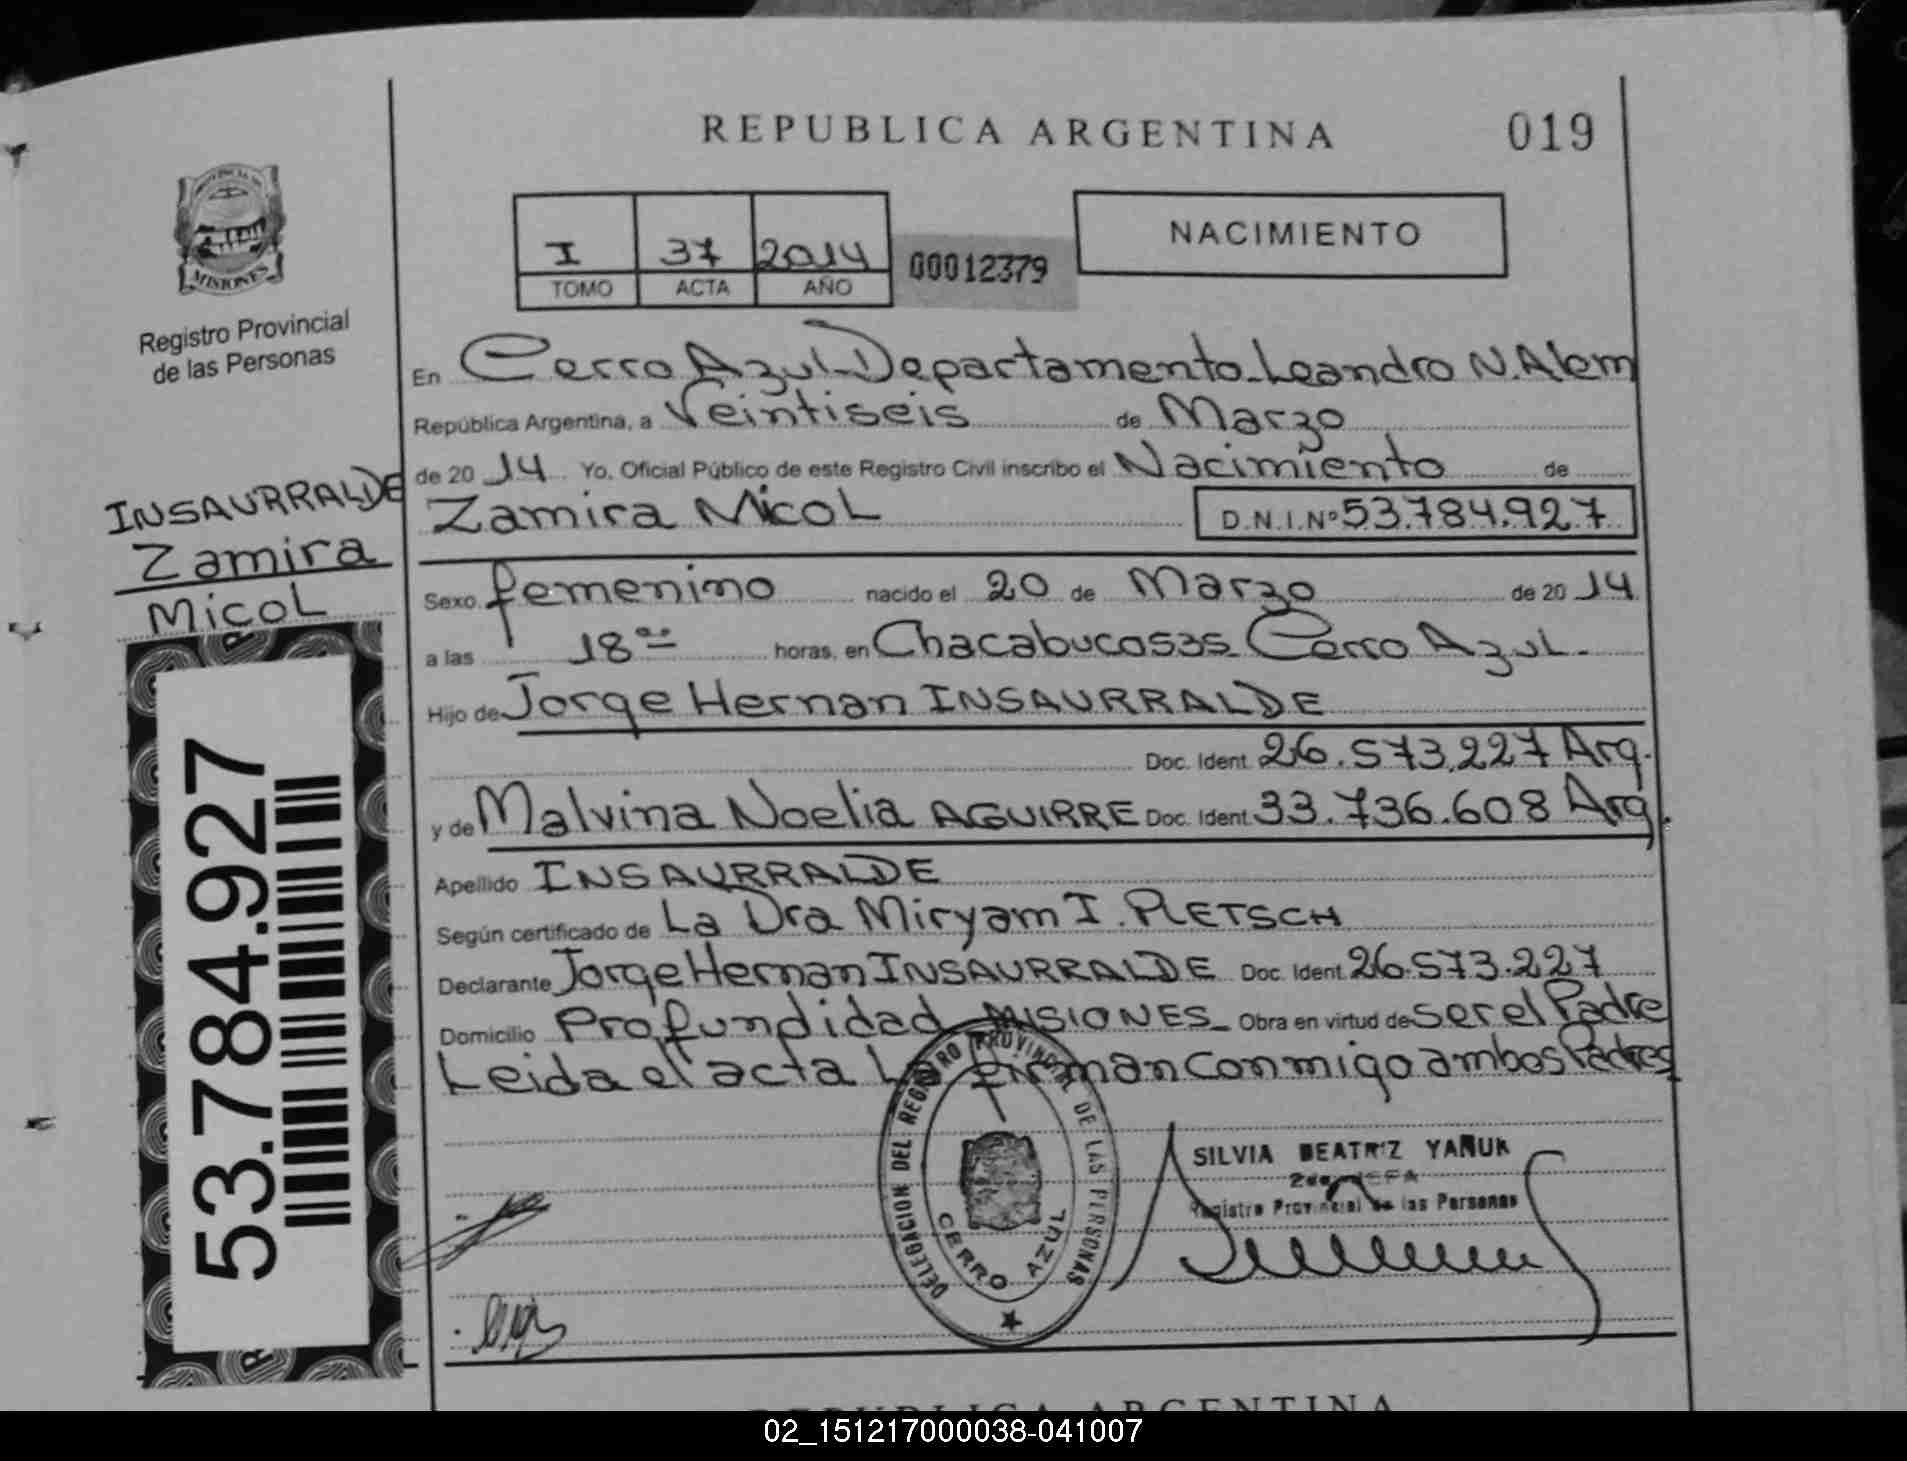 REPUBLICA ARGENTINA
019
PROVINCIA DE
MISIONES
Registro Provincial
de las Personas
I 37 2014
TOMO ACTA AÑO
00012379
NACIMIENTO
En Cerro Azul-Departamento-Leandro N. Alem
República Argentina, a Veintiseis de Marzo
de 20 14 Yo, Oficial Público de este Registro Civil inscribo el Nacimiento de
Zamira Micol D.N.I.Nº 53.784.927
INSAURRALDE
Zamira
Micol
53.784.927
Sexo femenino nacido el 20 de Marzo de 20 14
a las 18 horas, en Chacabuco 535 Cerro Azul.
Hijo de Jorge Hernan INSAURRALDE
Doc. Ident. 26.573.227 Arg.
y de Malvina Noelia AGUIRRE Doc. Ident. 33.736.608 Arg.
Apellido INSAURRALDE
Según certificado de La Dra Miryam I. PLETSCH
Declarante Jorge Hernan INSAURRALDE Doc. Ident. 26.573.227
Domicilio Profundidad MISIONES_ Obra en virtud de ser el Padre
Leida el acta La firman conmigo ambos Padres
DELEGACION DEL REGISTRO PROVINCIAL DE LAS PERSONAS
CERRO AZUL
SILVIA BEATRIZ YAÑUK
2da JEFA
Registro Provincial de las Personas
REPUBLICA ARGENTINA
02_151217000038-041007